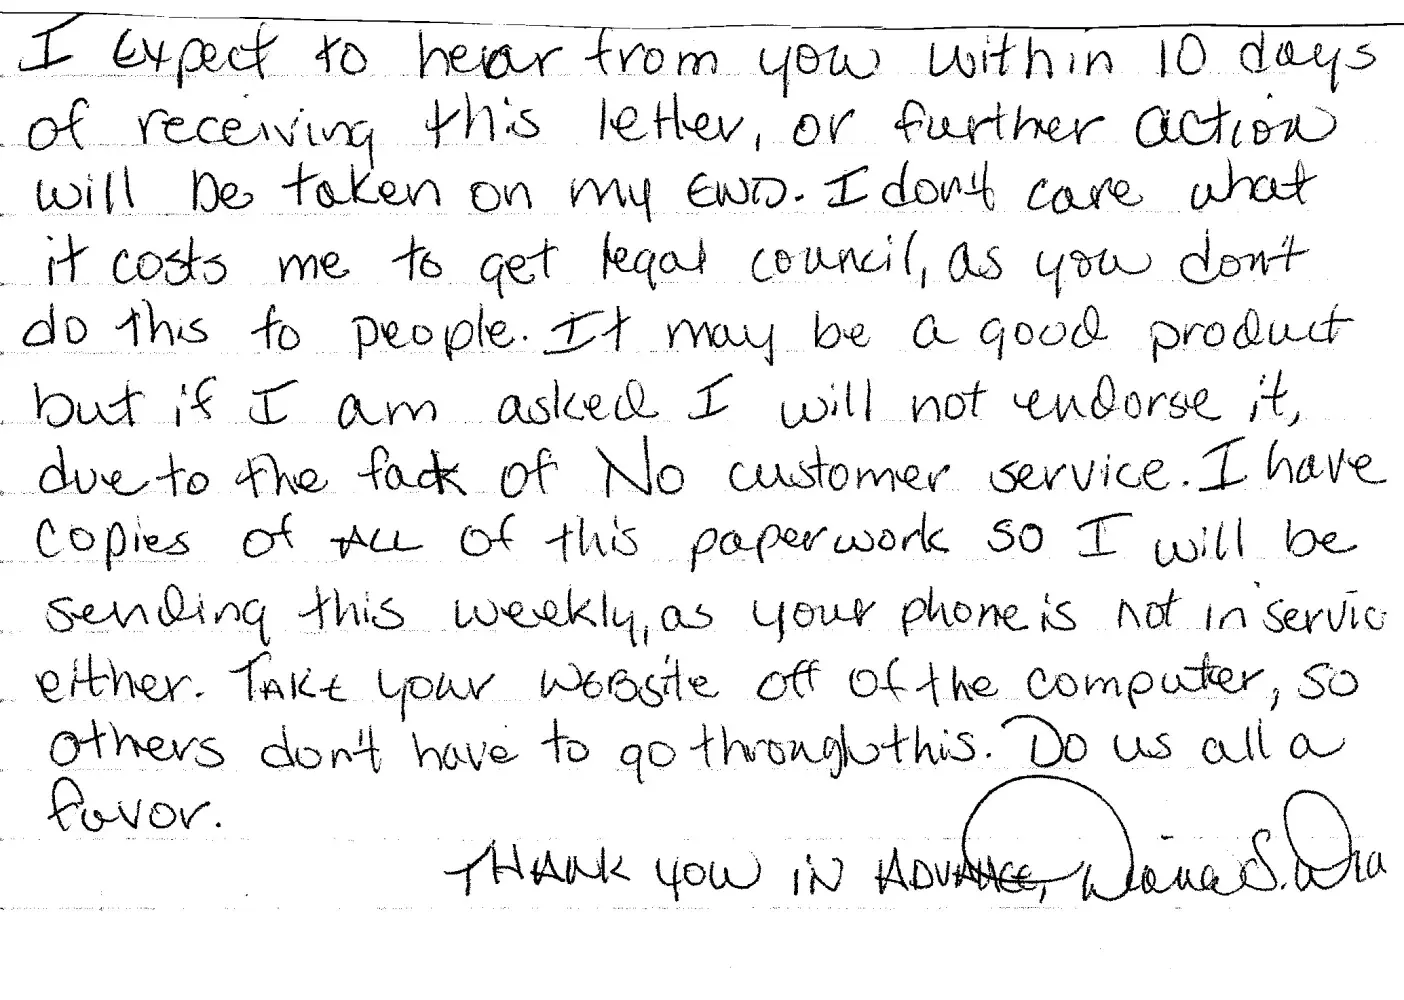 I Expect to hear from you within 10 days
of receiving this letter, or further action
will be taken on my END. I don't care what
it costs me to get legal council, as you don't
do this to people. It may be a good product
but if I am asked I will not endorse it,
due to the fack of No customer service. I have
copies of ALL of this paperwork so I will be
sending this weekly, as your phone is not in servic
either. TAKE your WEBsite off of the computer, so
others don't have to go through this. Do us all a
favor.
THANK YOU IN ADVANCE, Diana S.